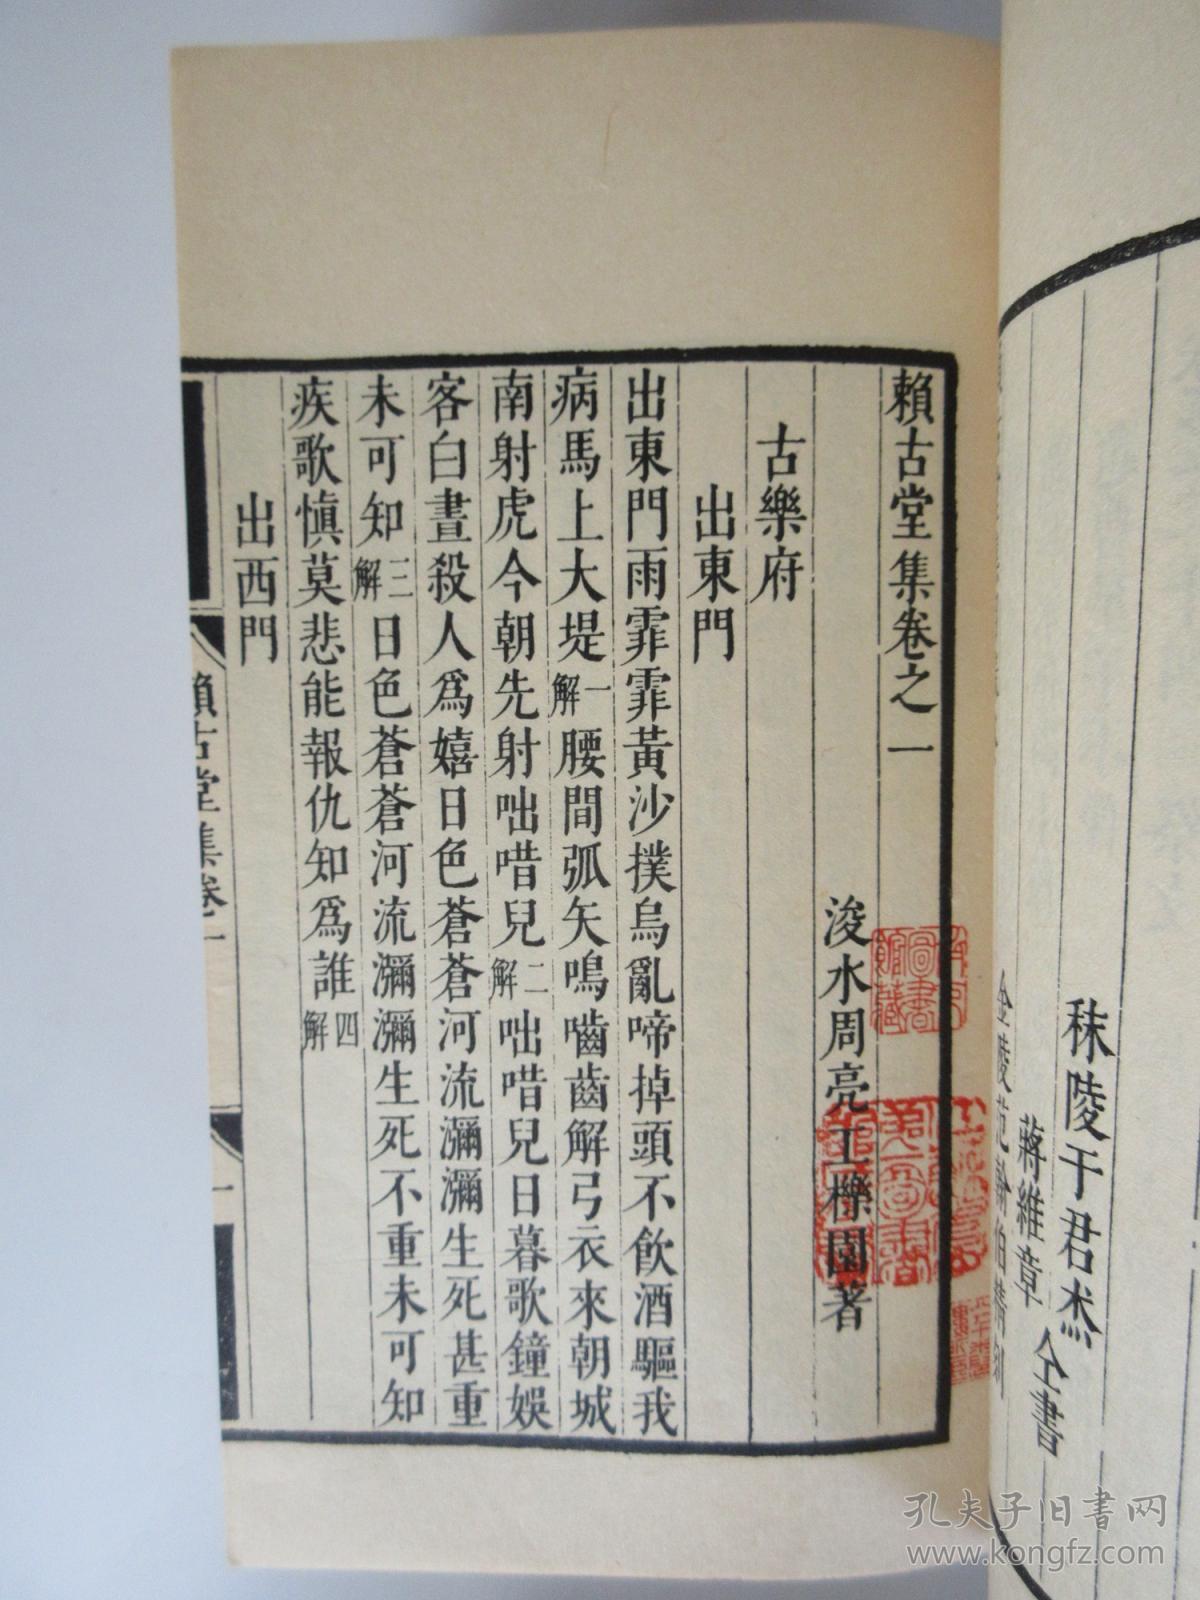 秣陵干君杰
蔣維章 仝書
賴古堂集卷之一
浚水周亮工櫟園著
古樂府
出東門
出東門雨霏霏黃沙撲烏亂啼掉頭不飲酒驅我
病馬上大堤一解腰間弧矢鳴嚙齒解弓衣來朝城
南射虎今朝先射咄唶兒二解咄唶兒日暮歌鐘娛
客白晝殺人爲嬉日色蒼蒼河流瀰瀰生死甚重
未可知三解日色蒼蒼河流瀰瀰生死不重未可知
疾歌愼莫悲能報仇知爲誰四解
出西門
賴古堂集卷一
一
孔夫子旧书网
www.kongfz.com